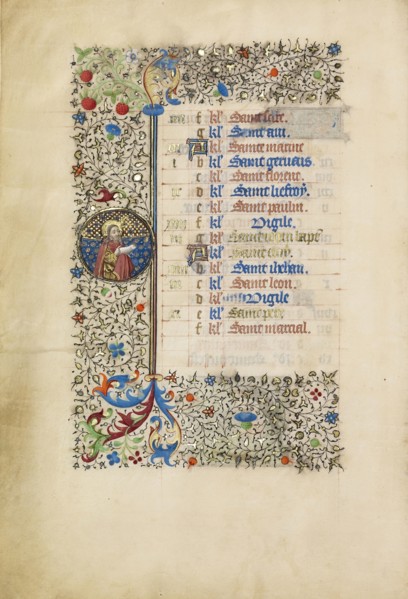 f kl' Saint cire.
g kl' Saint aui.
A kl' Sainte marine
i b kl' Saint geruais
kl' Saint florent.
ix d kl' Saint liefroy.
e kl' Saint paulin.
f kl' Vigile
g kl' Saint
A kl' Saint eloy.
kl' Saint iehan.
c kl' Saint leon.
d kl' Vigile
e kl' Saint pere
f kl' Saint marcial.